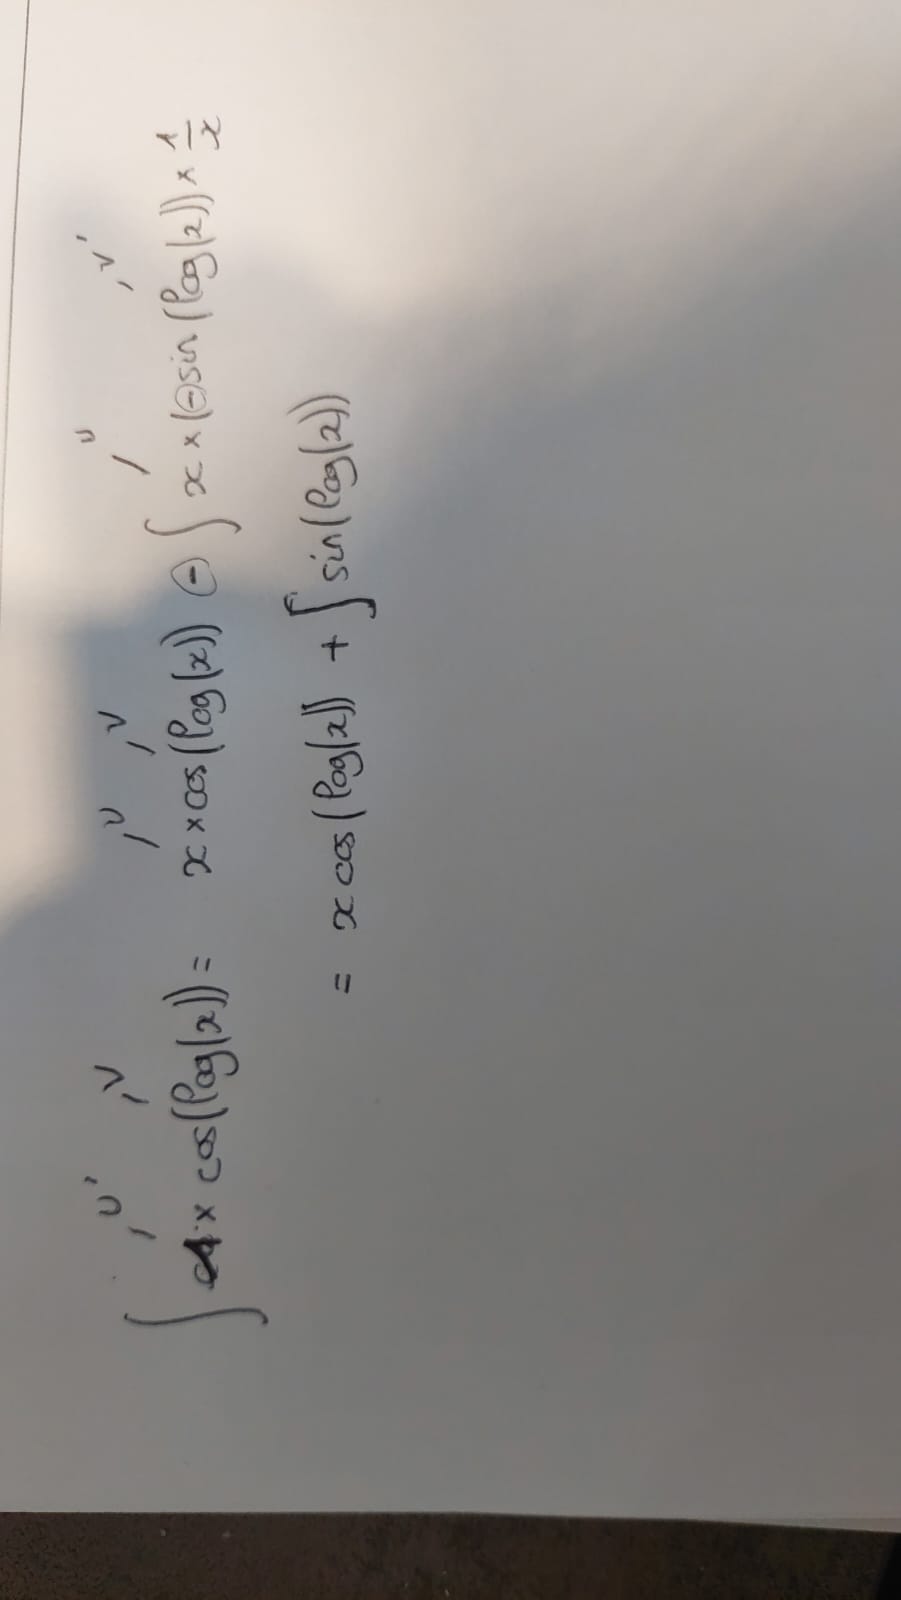 u' v u v u v'
∫ 1 × cos(log(x)) = x × cos(log(x)) ⊖ ∫ x × (⊖sin(log(x)) × 1/x
= x cos(log(x)) + ∫ sin(log(x))